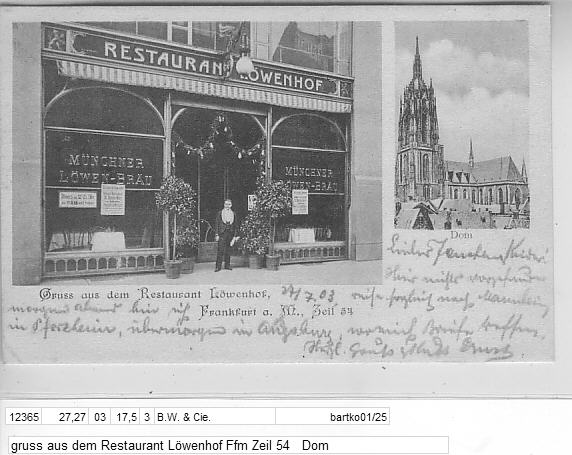 RESTAURANT LÖWENHOF
MÜNCHNER
LÖWEN-BRÄU
MÜNCHNER
LÖWEN-BRÄU
Dom
Gruss aus dem Restaurant Löwenhof,
Frankfurt a. M., Zeil 54
27/7.03
reise sogleich nach Mannheim
morgen Abend bin ich
in Pforzheim, übermorgen in Augsburg, wo mich Briefe treffen.
Herzl. Gruß
12365 27,27 03 17,5 3 B.W. & Cie. bartko01/25
gruss aus dem Restaurant Löwenhof Ffm Zeil 54 Dom